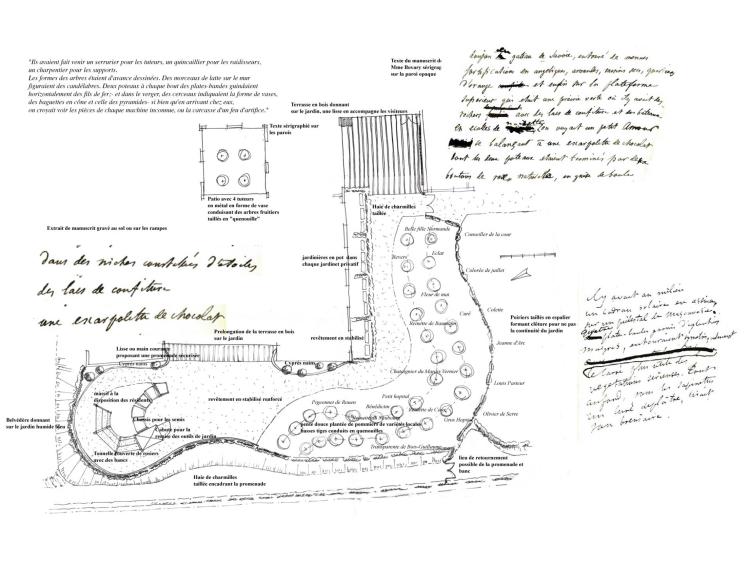 "Ils avaient fait venir un serrurier pour les tuteurs, un quincaillier pour les raidisseurs,
un charpentier pour les supports.
Les formes des arbres étaient d'avance dessinées. Des morceaux de latte sur le mur
figuraient des candélabres. Deux poteaux à chaque bout des plates-bandes guindaient
horizontalement des fils de fer; et dans le verger, des cerceaux indiquaient la forme de vases,
des baguettes en cône et celle des pyramides- si bien qu'en arrivant chez eux,
on croyait voir les pièces de chaque machine inconnue, ou la carcasse d'un feu d'artifice."
Texte du manuscrit de
Mme Bovary sérigraphié
sur la paroi opaque
gateau de Savoie, entouré de menues
fortifications en angélique, amandes, raisins secs, quartiers
d'orange et enfin sur la plateforme
supérieure qui était une prairie verte où il y avait des
rochers avec des lacs de confiture et des bateaux
en écales de noisettes, on voyait un petit Amour
se balançant à une escarpolette de chocolat
dont les deux poteaux étaient terminés par deux
boutons de rose naturelle, en guise de boule
Terrasse en bois donnant
sur le jardin, une lisse en accompagne les visiteurs
Texte sérigraphié sur
les parois
Patio avec 4 tuteurs
en métal en forme de vase
conduisant des arbres fruitiers
taillés en "quenouille"
Haie de charmilles
taillée
Extrait de manuscrit gravé au sol ou sur les rampes
dans des niches constellées d'étoiles
des lacs de confiture
une escarpolette de chocolat
jardinières en pot dans
chaque jardinet privatif
Belle fille Normande
Conseiller de la cour
Eclat
Colorée de juillet
Fleur de mai
Reinette de
Curé
Colette
Poiriers taillés en espalier
formant clôture pour ne pas
la continuité du jardin
Jeanne d'Arc
Il y avait au milieu
un cadran solaire en ardoise
sur un piédestal de maçonnerie
Prolongation de la terrasse en bois
sur le jardin
revêtement en stabilisé
Lisse ou main courante
proposant une promenade sécurisée
Cyprès nains
Cyprès nains
Louis Pasteur
massif à la
disposition des résidents
revêtement en stabilisé renforcé
Petit hopital
Pigeonnet de Rouen
Bénédictin
Olivier de Serre
Belvédère donnant
sur le jardin humide bleu
Chassis pour les semis
Cabane pour la
remise des outils de jardin
pente douce plantée de pommiers de variétés locales
basses tiges conduits en quenouilles
Transparente de Bois-Guillaume
Tonnelle couverte de rosiers
avec des bancs
lieu de retournement
possible de la promenade et
banc
Haie de charmilles
taillée encadrant la promenade